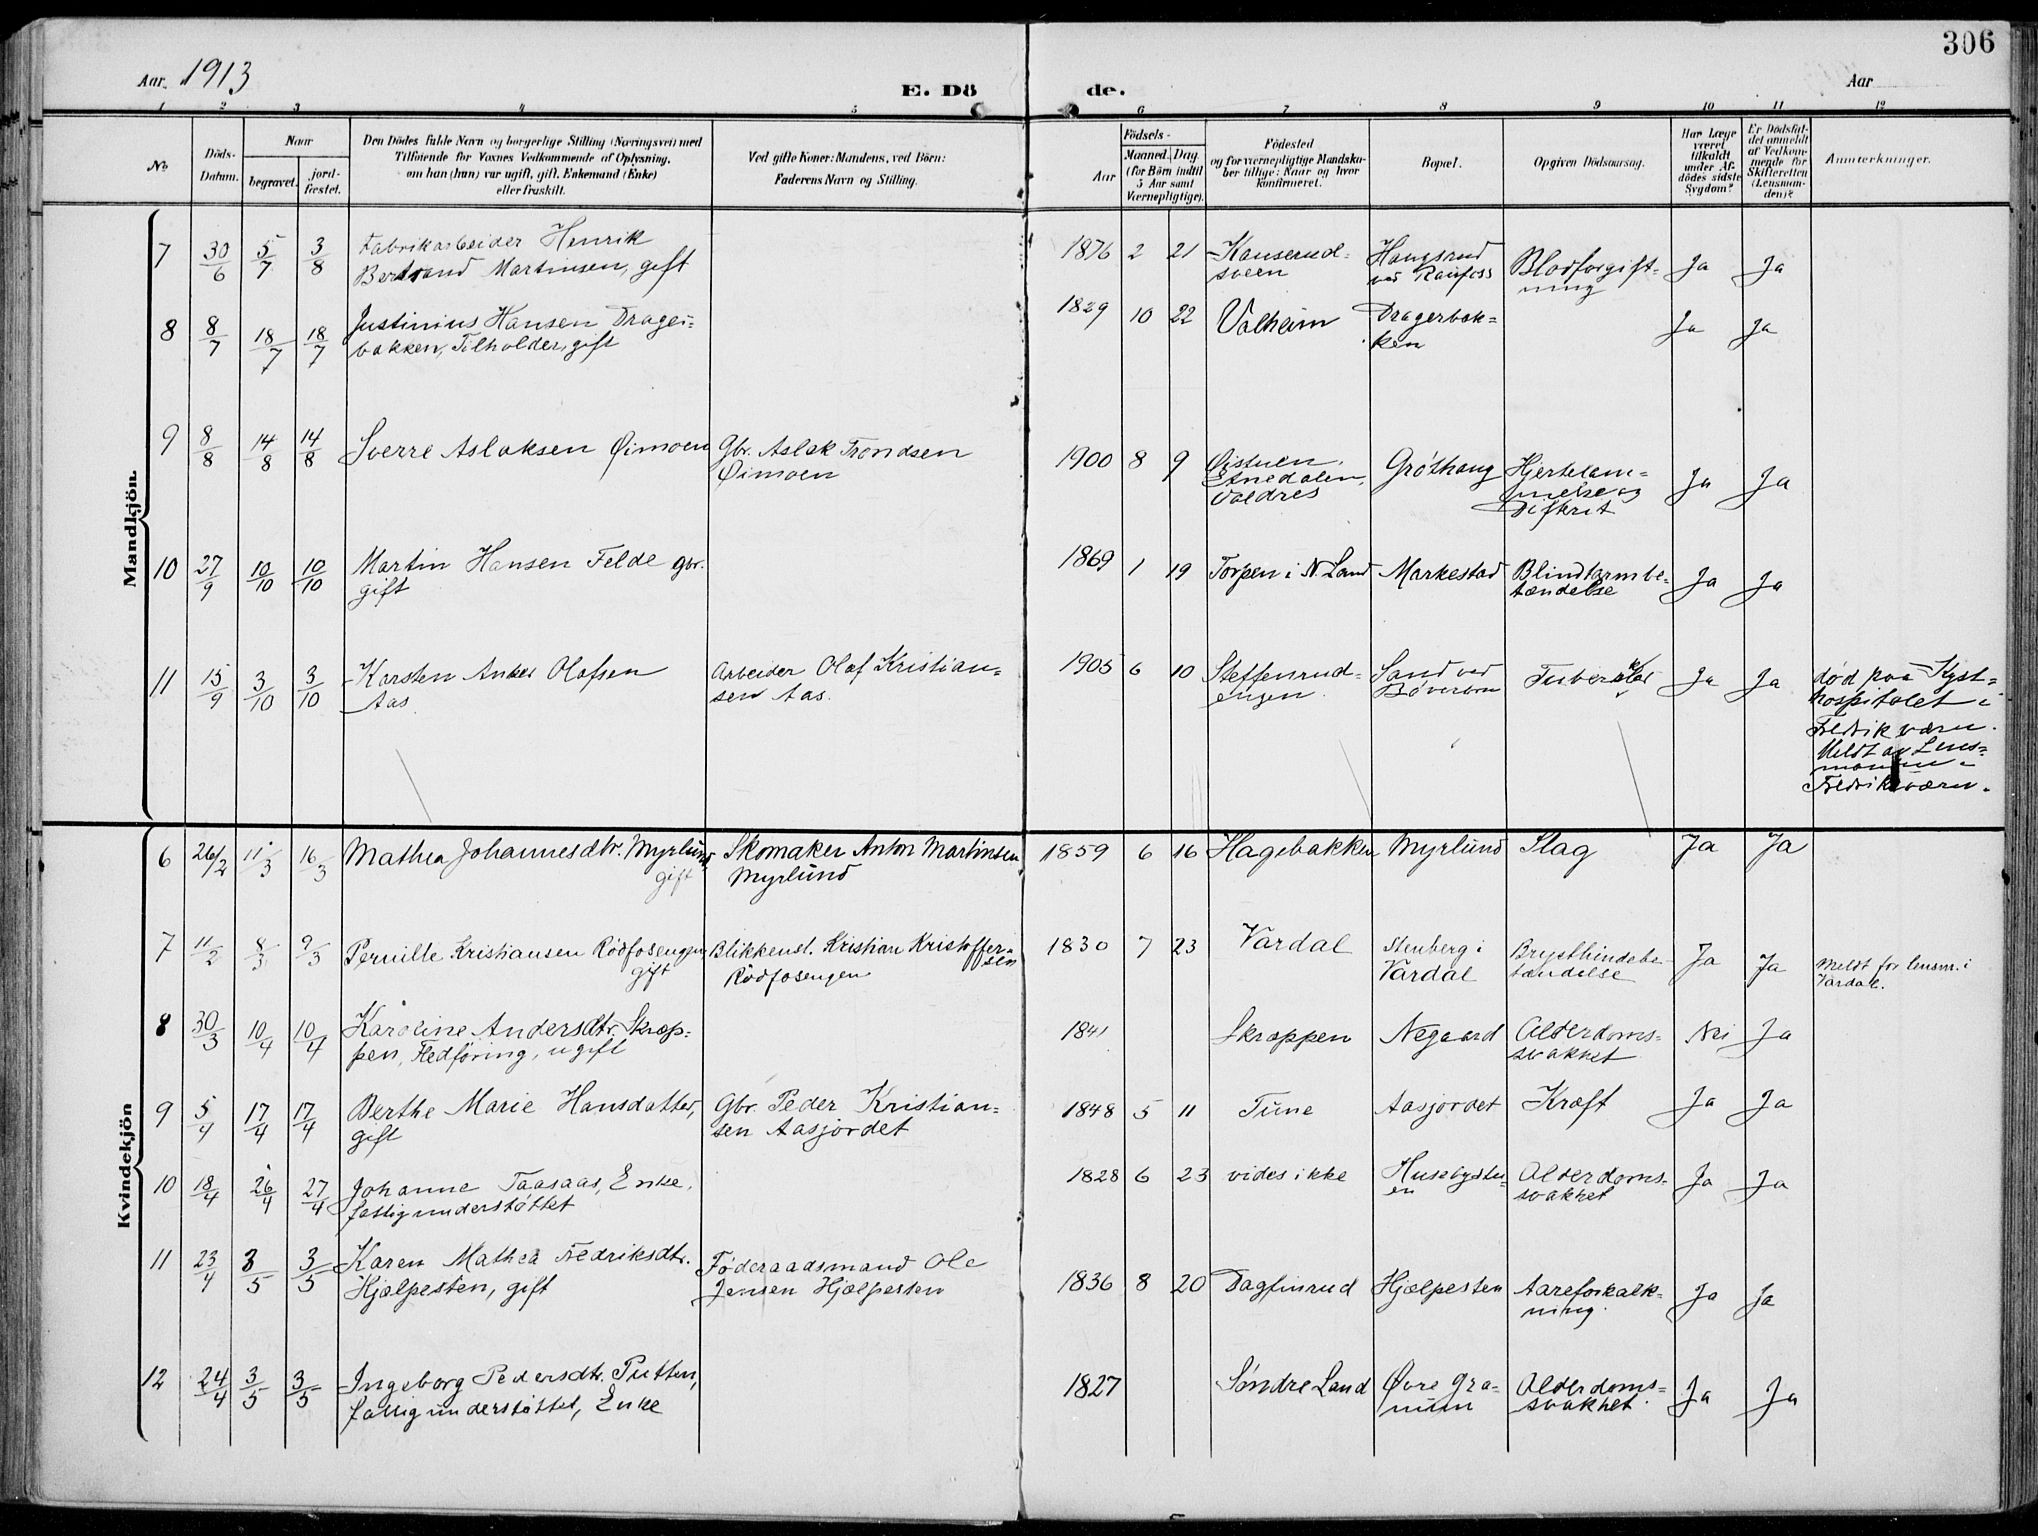 306
Aar 1913
E. Dö de.
Aar
1 2 3 4 5 6 7 8 9 10 11 12
No.
Döds-Datum.
Naar
begravet.
jord-fæstet.
Den Dödes fulde Navn og borgerlige Stilling (Næringsvei) med
Tilföiende for Voxnes Vedkommende af Oplysning,
om han (hun) var ugift, gift, Enkemand (Enke)
eller fraskilt.
Ved gifte Koner: Mandens, ved Börn:
Faderens Navn og Stilling.
Födsels-
Aar
Maaned. Dag
(for Börn indtil
5 Aar samt
Værnepligtige).
Födested
og for værnepligtige Mandska-
ber tillige: Naar og hvor
konfirmeret.
Bopæl.
Opgiven Dödsaarsag.
Har Læge
været
tilkaldt
under Af-
dödes sidste
Sygdom?
Er Dödsfal-
det anmeldt
af Vedkom-
mende for
Skifteretten
(Lensman-
den)?
Anmerkninger.
Mandkjön.
7 30/6 5/7 3/8 Fabrikarbeider Henrik
Bertrand Martinsen, gift
1876 2 21 Kanserud-
sveen
Haugsrud
ved Raufoss
Blodforgift-
ning
Ja Ja
8 8/7 18/7 18/7 Justinius Hansen Drager-
bakken, Tilholder, gift
1829 10 22 Valheim
Dragerbak-
ken
Ja Ja
9 8/8 14/8 14/8 Sverre Aslaksen Øimoen
Gbr. Aslak Trondsen
Øimoen
1900 8 9 Øistuen,
Etnedalen,
Valdres
Gróthaug
Hjertelam-
melse og
Difterit
Ja Ja
10 27/9 10/10 10/10 Martin Hansen Felde gbr.
gift
1869 1 19 Torpen i N. Land
Markestad
Blindtarmbe-
tændelse
Ja Ja
11 15/9 3/10 3/10 Karsten Anker Olafsen
Aas
Arbeider Olaf Kristian-
sen Aas.
1905 6 10 Steffenrud-
engen
Sand ved
Bøverbru
Ja Ja
død paa Kyst-
hospitalet i
Fredrikværn.
Meldt av Lens-
manden i
Fredriksværn.
Kvindekjön
6 26/2 11/3 16/3 Mathea Johannesdtr. Myrlund,
gift
Skomaker Anton Martinsen
Myrlund
1859 6 16 Hagebakken
Myrlund
Slag
Ja Ja
7 11/2 8/3 9/3 Pernille Kristiansen Rödfosengen
gift
Blikkensl. Kristian Kristoffer-
sen
Rödfosengen
1830 7 23 Vardal
Stenberg i
Vardal
Brysthindebe-
tændelse
Ja Ja
Meldt for lensm. i
Vardal.
8 30/3 10/4 10/4 Karoline Andersdtr. Skrap-
pen, Fledføring, ugift
1841 Skrappen
Negaard
Alderdoms-
svakhet
Nei Ja
9 5/4 17/4 17/4 Berthe Marie Hansdatter,
gift
Gbr. Peder Kristian-
sen Aasjordet
1848 5 11 Tune
Aasjordet
Kræft
Ja Ja
10 18/4 26/4 27/4 Johanne Taasaas, Enke,
fattigunderstøttet
1828 6 23 vides ikke
Husebystu-
en
Alderdoms-
svakhet
Ja Ja
11 23/4 3/5 3/5 Karen Mathea Fredriksdtr.
Hjælpesten, gift
Føderaadsmand Ole
Jensen Hjælpesten
1836 8 20 Dagfinrud
Hjælpesten
Aareforkalk-
ning.
Ja Ja
12 24/4 3/5 3/5 Ingeborg Pedersdtr. Putten,
fattigunderstøttet, Enke
1827 Søndre Land
Øvre Gra-
num
Alderdoms-
svakhet.
Ja Ja